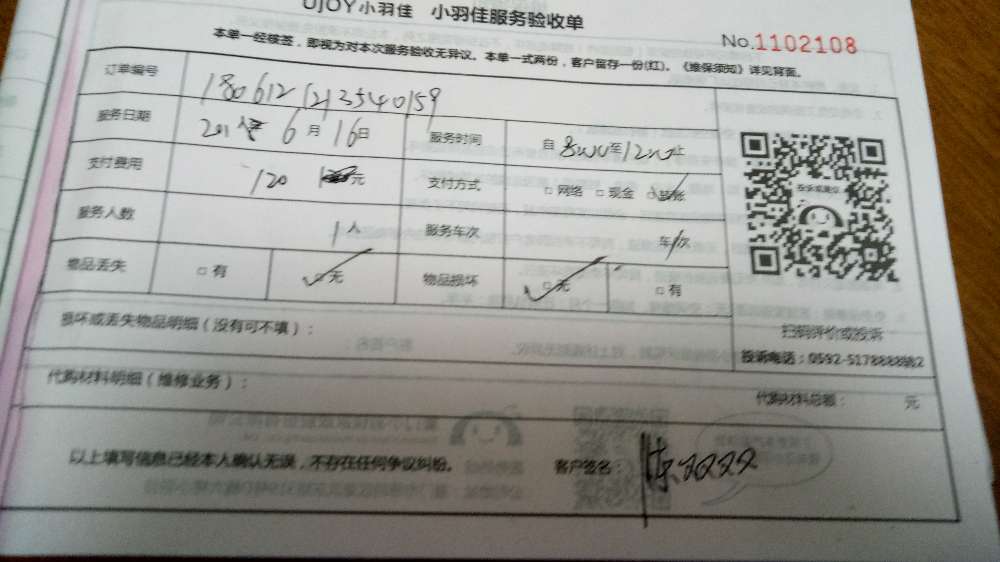 UJOY小羽佳 小羽佳服务验收单
No.1102108
本单一经核签，即视为对本次服务验收无异议。本单一式两份，客户留存一份(红)。《维保须知》详见背面。
订单编号 180612121354 0159
服务日期 201 年 6 月 16 日 服务时间 自 8:00 至 12:00 止
支付费用 120 元 支付方式 □ 网络 □ 现金 □ 转账
服务人数 1 人 服务车次 车/次
物品丢失 □ 有 □ 无 物品损坏 □ 无 □ 有
投诉或建议
扫码评价或投诉
投诉电话：0592-5178888转2
损坏或丢失物品明细（没有可不填）：
代购材料明细（维修业务）：
代购材料总额： 元
以上填写信息已经本人确认无误，不存在任何争议纠纷。
客户签名： 陈